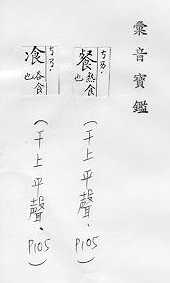 彙音寶鑑
餐 熟食也
(干上平聲、P105)
飡 吞食也
(干上平聲、P105)